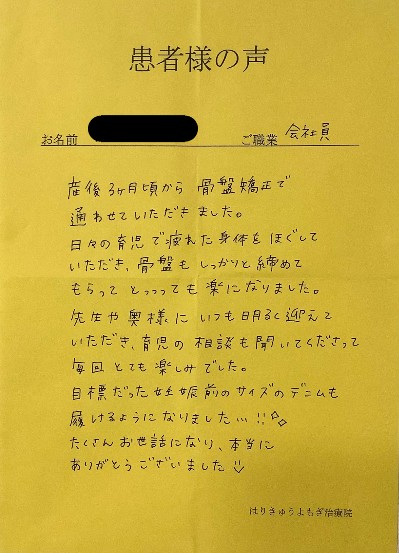 患者様の声
お名前 ご職業 会社員
産後3ヶ月頃から 骨盤矯正で
通わせていただきました。
日々の育児で疲れた身体をほぐして
いただき、骨盤もしっかりと締めて
もらって とっっっても楽になりました。
先生や奥様に いつも明るく迎えて
いただき、育児の相談も聞いてくださって
毎回 とても楽しみでした。
目標だった妊娠前のサイズのデニムも
履けるようになりました…!!
たくさんお世話になり、本当に
ありがとうございました
はりきゅうよもぎ治療院